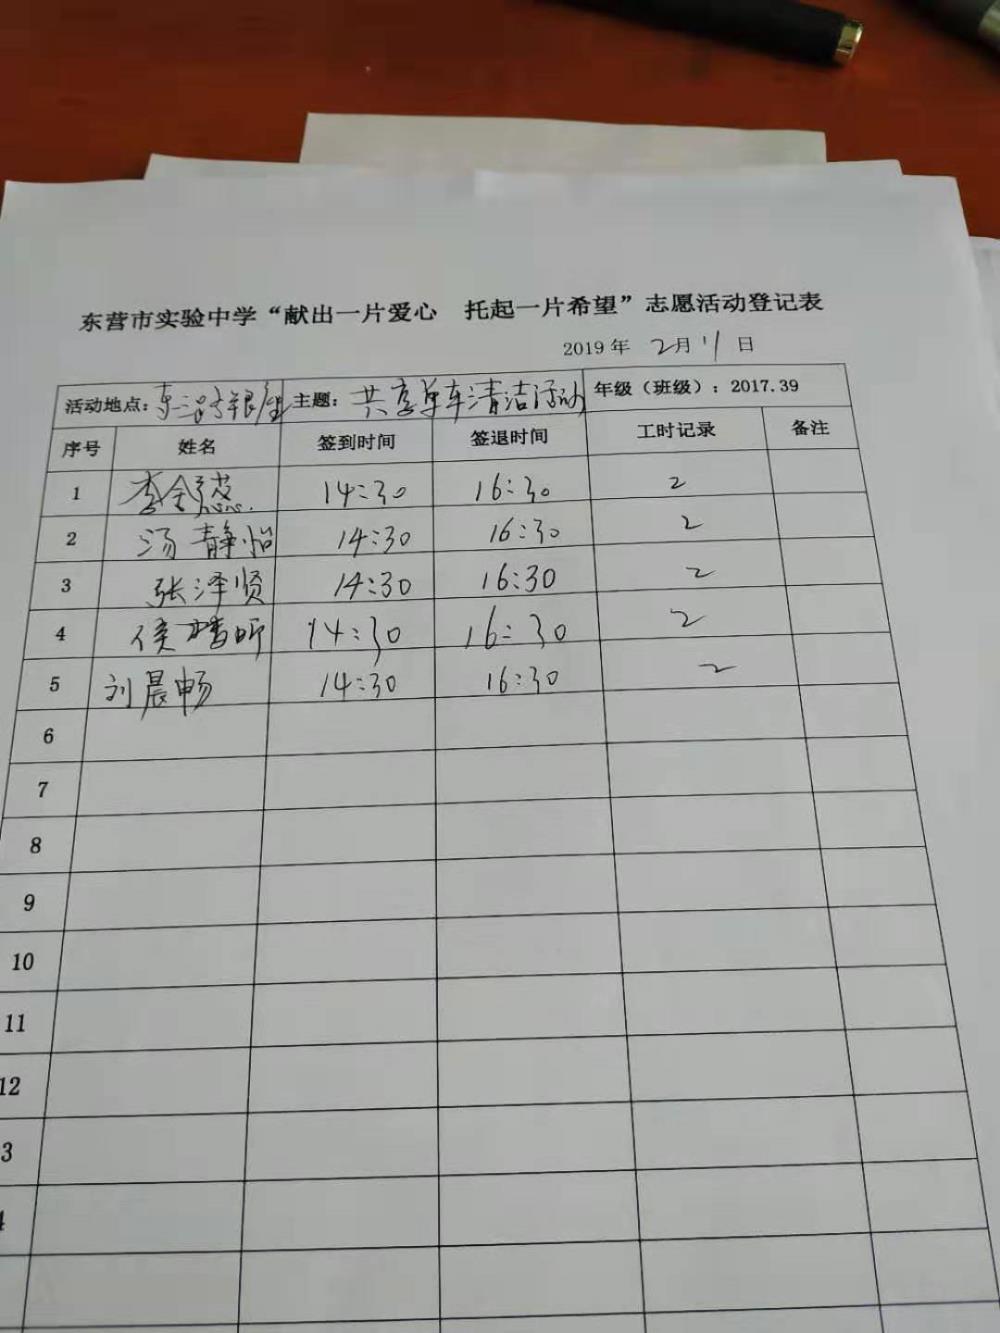 东营市实验中学“献出一片爱心 托起一片希望”志愿活动登记表
2019 年 2月 11 日
活动地点: 东三路银座 主题: 共享单车清洁活动 年级（班级）: 2017.39
序号 姓名 签到时间 签退时间 工时记录 备注
1 李全蕊 14:30 16:30 2
2 汤静怡 14:30 16:30 2
3 张泽贤 14:30 16:30 2
4 侯 昕 14:30 16:30 2
5 刘晨畅 14:30 16:30 2
6
7
8
9
10
11
12
3
4